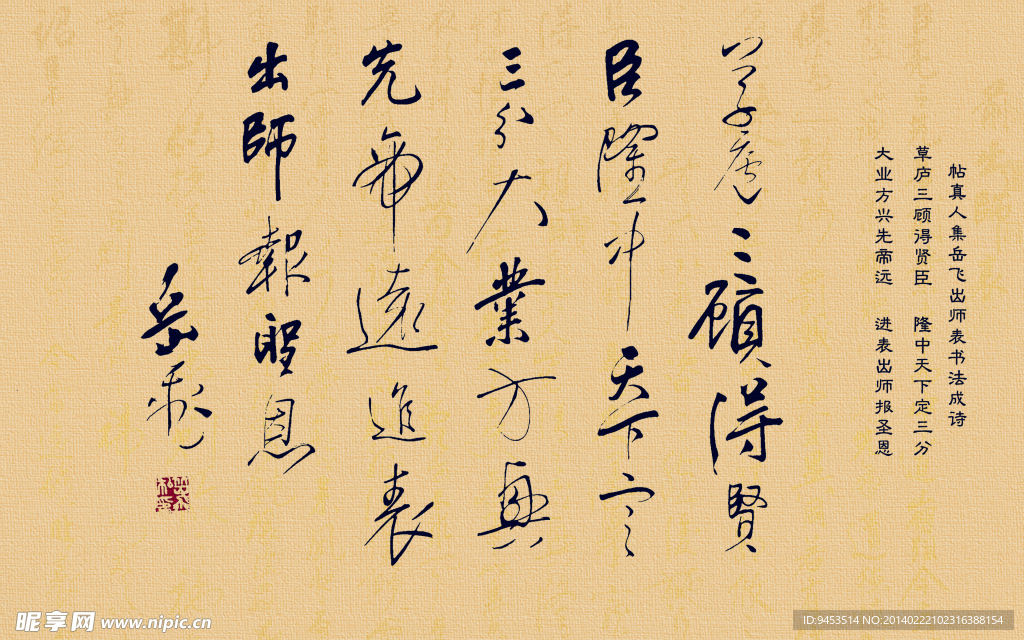 帖真人集岳飞出师表书法成诗
草庐三顾得贤臣 隆中天下定三分
大业方兴先帝远 进表出师报圣恩
草廬三顧得賢
臣隆中天下定
三分大業方興
先帝遠進表
出師報聖恩
岳飛
昵享网 www.nipic.cn
ID:9453514 NO:20140222102316388154